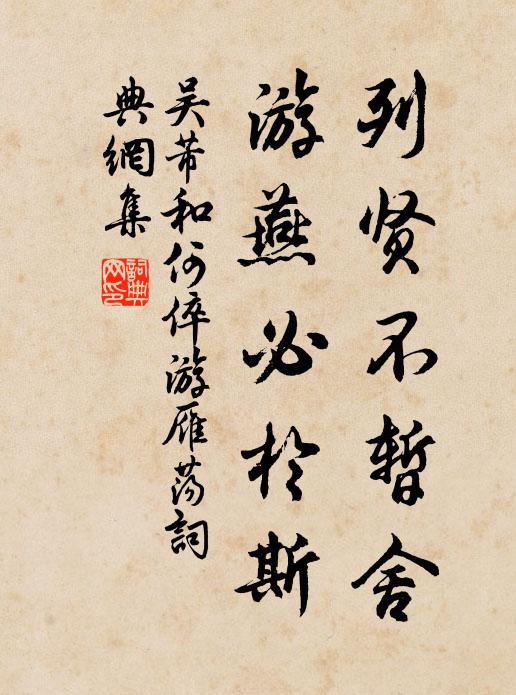 列贤不暂舍
游燕必於斯
吴芾和何倅游雁荡詞
典網集
詞典網印